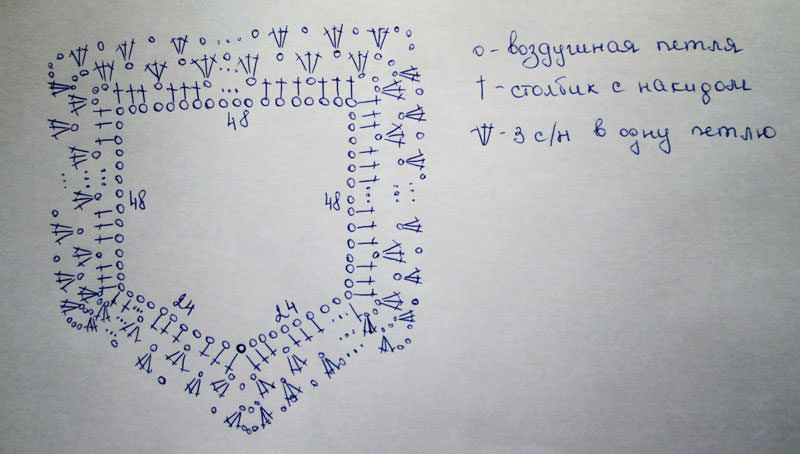 о - воздушная петля
† - столбик с накидом
3 с/н в одну петлю
48
48
48
24
24